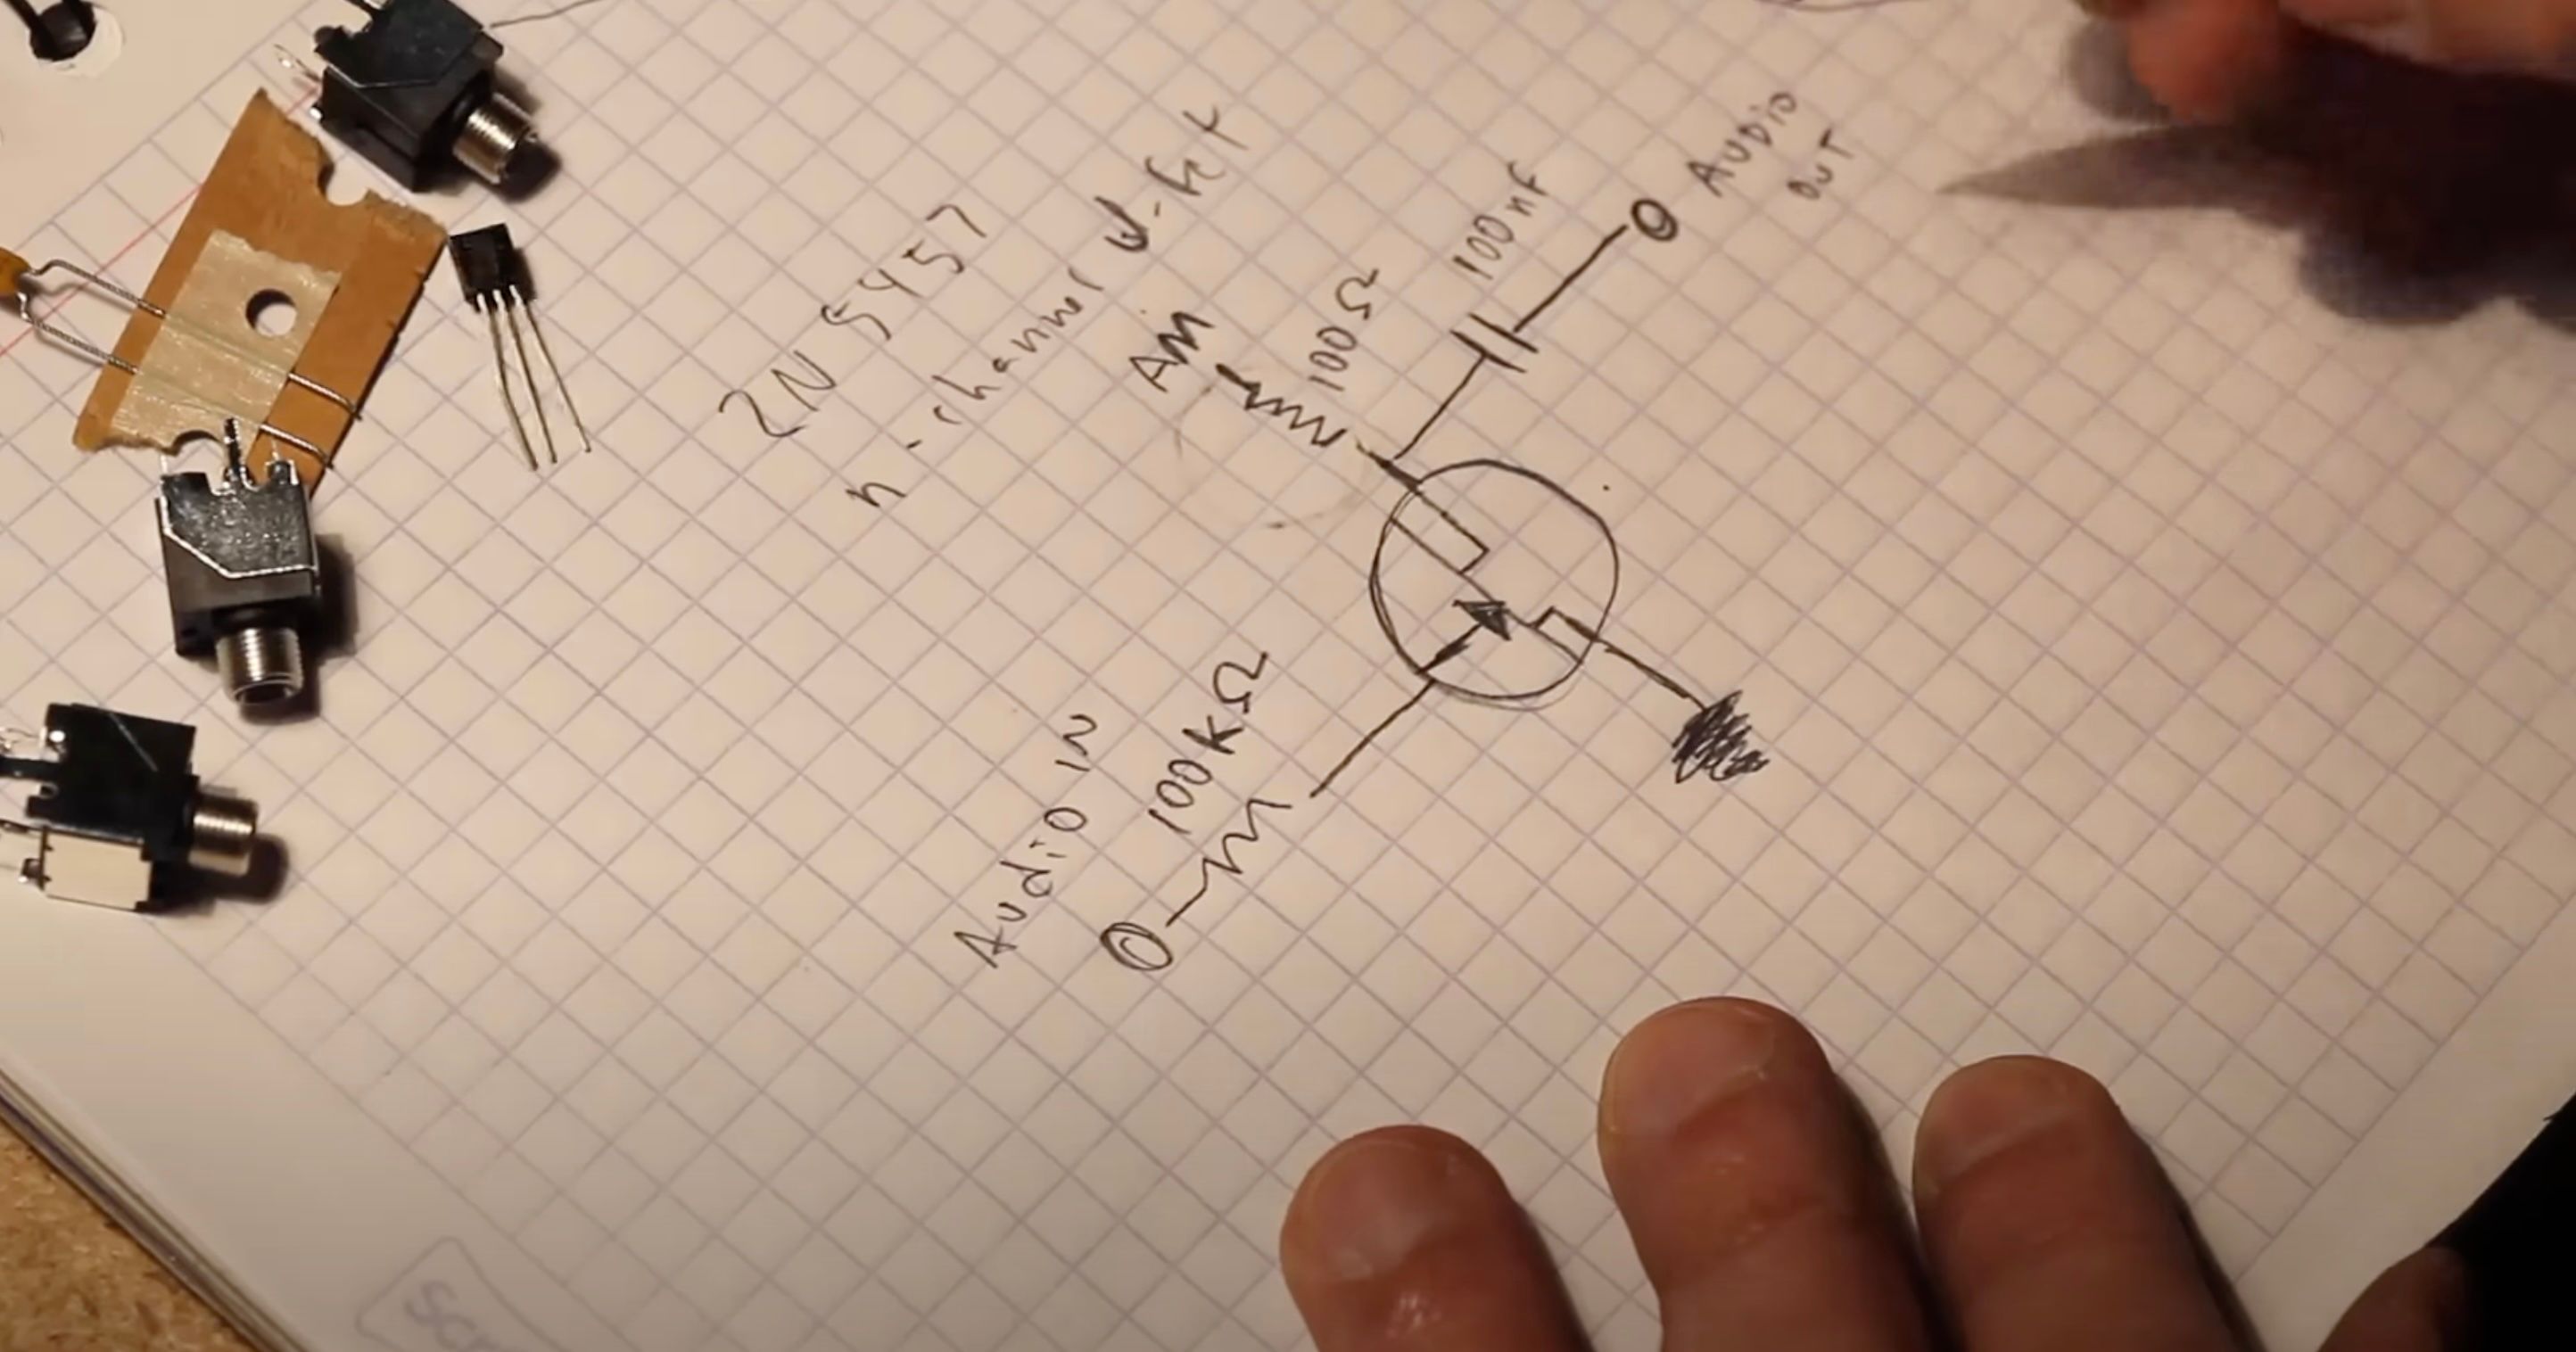 2N 5457
n-channel J-fet
AM
100Ω
100nF
AUDiO
OUT
AudiO IN
100KΩ